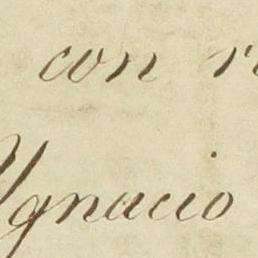 con
Ygnacio